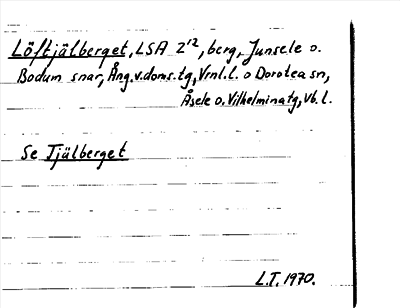 Löftjälberget, LSA 2'², berg, Junsele o.
Bodum snar, Ång.v.doms.tg, Vrnl.l. o Dorotea sn,
Åsele o. Vilhelmina tg, Vb. l.
Se Tjälberget
L.T. 1970.